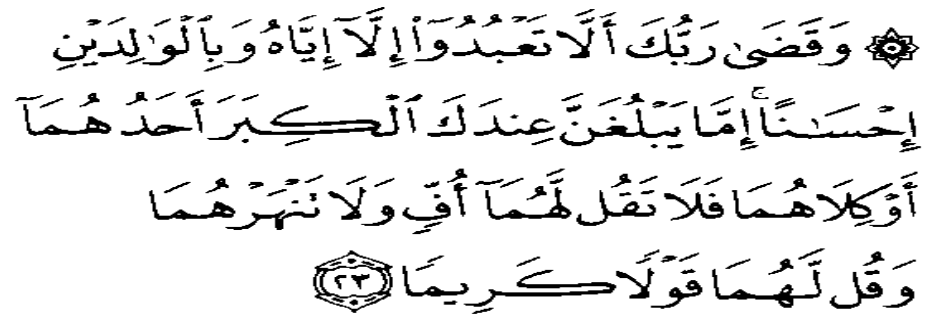 ۞ وَقَضَىٰ رَبُّكَ أَلَّا تَعْبُدُوٓا۟ إِلَّآ إِيَّاهُ وَبِٱلْوَٰلِدَيْنِ
إِحْسَـٰنًا ۚ إِمَّا يَبْلُغَنَّ عِندَكَ ٱلْكِبَرَ أَحَدُهُمَآ
أَوْ كِلَاهُمَا فَلَا تَقُل لَّهُمَآ أُفٍّ وَلَا تَنْهَرْهُمَا
وَقُل لَّهُمَا قَوْلًا كَرِيمًا ﴿٢٣﴾